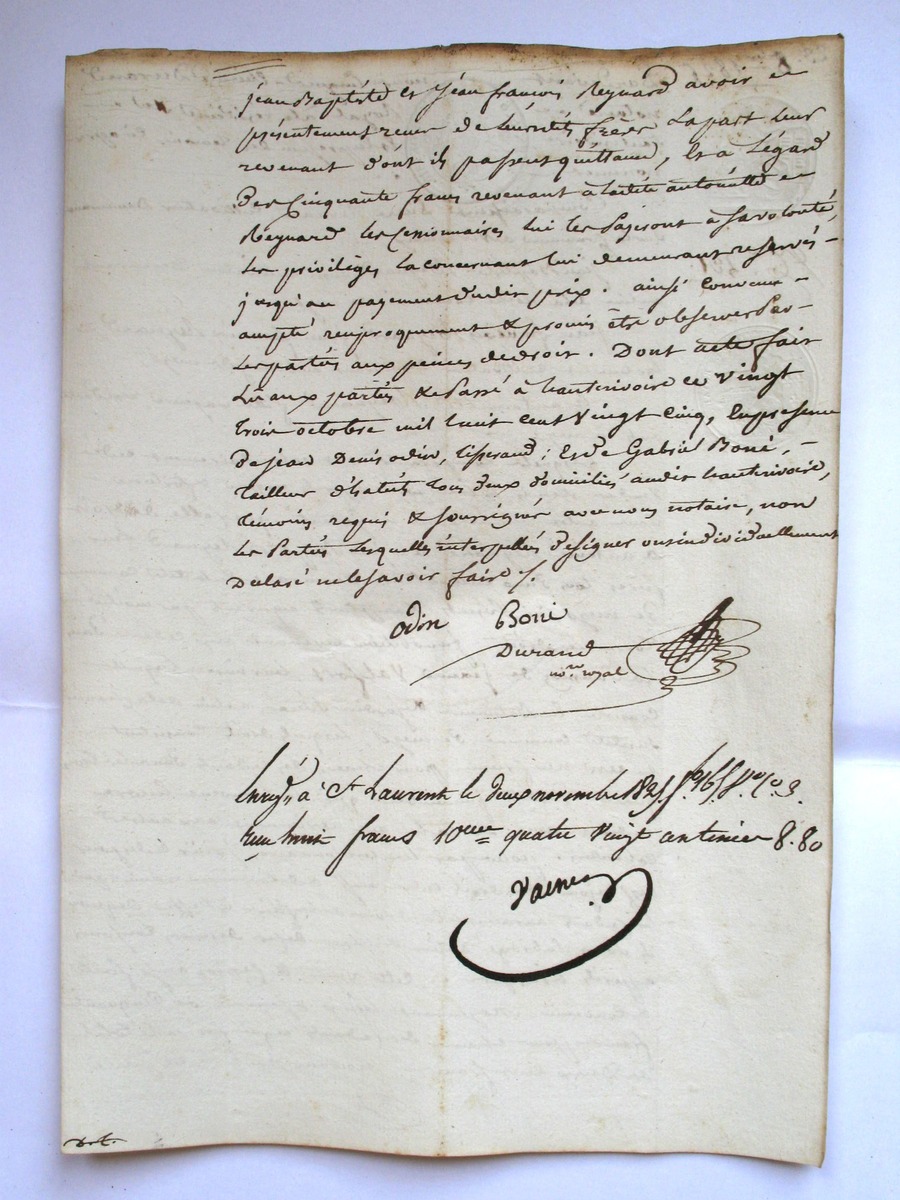 jean Baptiste et jean francois Reynard avoir en
présentement recue de leursdits frères La part leur
revenant dont ils passent quittance, Et a Légard
Des Cinquante francs revenant a ladite antoinette
Reynard les Cessionnaires lui les Payeront à sa volonté,
les priviléges la concernant lui demeurant reservés
jusqu'au payement dudit prix. ainsi convenu
accepté reciproquement & promis être observer Par
les parties aux peines de droit. Dont acte fait
Lû aux parties & Passé à hauterivoire ce vingt
trois octobre mil huit cent vingt cinq, En presence
de jean Denis odin, tisserand; Et de Gabriel Boné,
tailleur d'habits tous deux domiciliés audit hauterivoire,
témoins requis & soussignés avec nous notaire, non
les Parties lesquelles interpellées de signer ont individuellement
Declaré ne le savoir faire /.
odin Boné
Durand
no.re royal
Enreg. à St Laurent le deux novembre 1825 f° 16
Reçu huit francs 10eme quatre vingt centimes 8.80